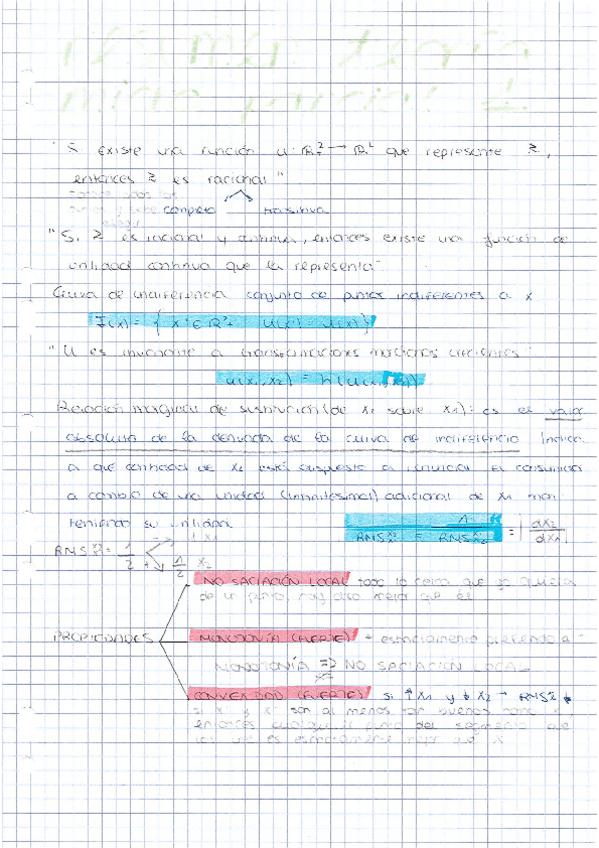 "Si existe una función u: R²₊ → R¹ que represente ≿,
entonces ≿ es racional"
completa transitiva
"Si ≿ es racional y continua, entonces existe una función de
utilidad continua que la representa"
Curva de indiferencia conjunto de puntos indiferentes a x
I(x) = { x' ∈ R²₊ u(x') u(x)}
"U es invariante a transformaciones monótonas crecientes"
u(x₁,x₂) = h(u(x₁,x₂))
Relación marginal de sustitución (de x₂ sobre x₁): es el valor
absoluto de la derivada de la curva de indiferencia Indica
a qué cantidad de x₂ está dispuesto a renunciar el consumidor
a cambio de una unidad (infinitesimal) adicional de x₁ man
teniendo su utilidad
RMS = 1 / RMS = | dx₂ / dx₁ |
RMS = 1/2
1/2 x₂
NO SACIACIÓN LOCAL todo lo cerca que se quiera
de un punto, hay otro mejor que él
PROPIEDADES
MONOTONÍA (FUERTE) + estrictamente preferido a -
MONOTONÍA => NO SACIACIÓN LOCAL
CONVEXIDAD (FUERTE) si ↑x₁ y ↓x₂ → RMS ↓
si x' y x'' son al menos tan buenos como x,
entonces cualquier punto del segmento que
los une es estrictamente mejor que x